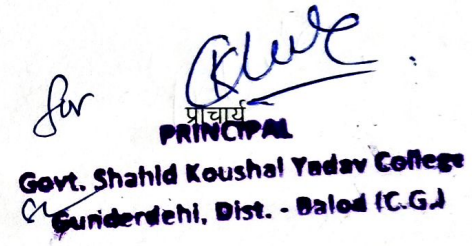 for
प्राचार्य
PRINCIPAL
Govt. Shahid Koushal Yadav College
Gunderdehi, Dist. - Balod (C.G.)